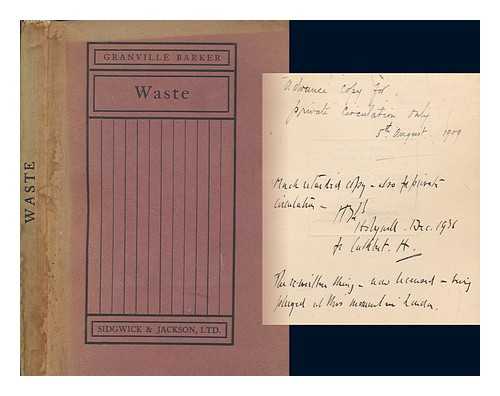 GRANVILLE BARKER
Waste
SIDGWICK & JACKSON, LTD.
WASTE
Advance Copy for
private circulation only
5th August 1909
Much retarded copy – also for private
circulation –
Dec. 1936
for Cuthbert. H.
The rewritten thing – now licensed – being
played at this moment in London.